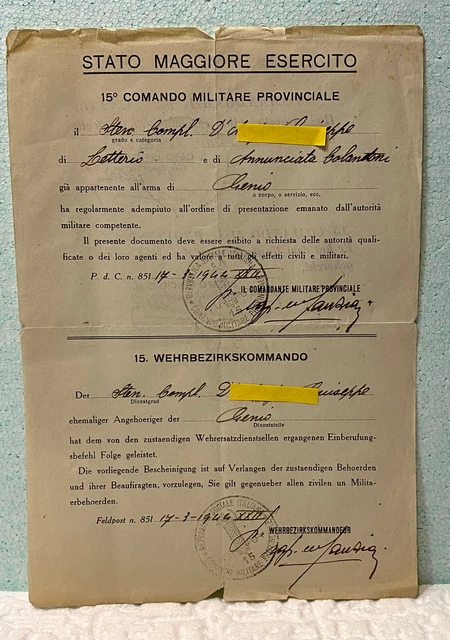 STATO MAGGIORE ESERCITO
15° COMANDO MILITARE PROVINCIALE
il Sten. Compl. D' Giuseppe
grado e categoria
di Letterio e di Annunciata Colandoni
già appartenente all'arma di Genio
o corpo, o servizio, ecc.
ha regolarmente adempiuto all'ordine di presentazione emanato dall'autorità
militare competente.
Il presente documento deve essere esibito a richiesta delle autorità quali-
ficate o dei loro agenti ed ha valore a tutti gli effetti civili e militari.
P. d. C. n. 851 17-3-1944 XXII
IL COMANDANTE MILITARE PROVINCIALE
15. WEHRBEZIRKSKOMMANDO
Der Sten. Compl. D Giuseppe
Dienstgrad
ehemaliger Angehoeriger der Genio
Dienststelle
hat dem von den zustaendigen Wehrersatzdienstsellen ergangenen Einberufung-
sbefehl Folge geleistet.
Die vorliegende Bescheinigung ist auf Verlangen der zustaendigen Behoerden
und ihrer Beaufiragten, vorzulegen, Sie gilt gegenueber allen zivilen un Milita-
erbehoerden.
Feldpost n. 851 17-3-1944 XXII
WEHRBEZIRKSKOMMANDEUR